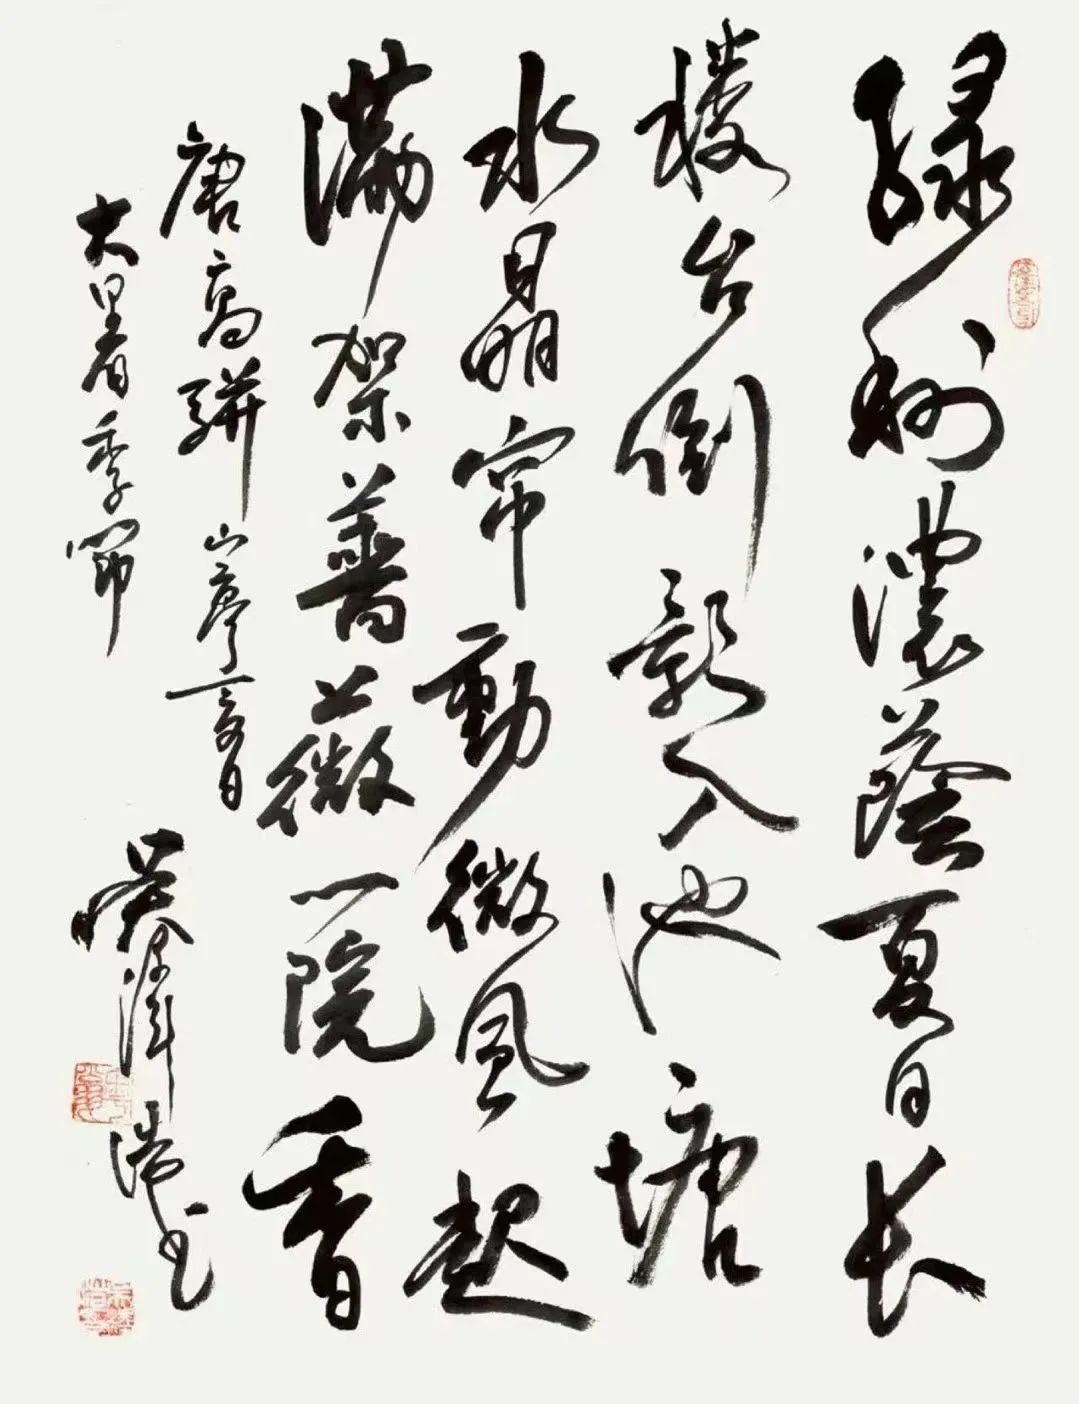 绿树濃蔭夏日长
楼台倒影入池塘
水晶帘動微風起
满架蔷薇一院香
唐高骈山亭夏日
大暑季节
泽浩书